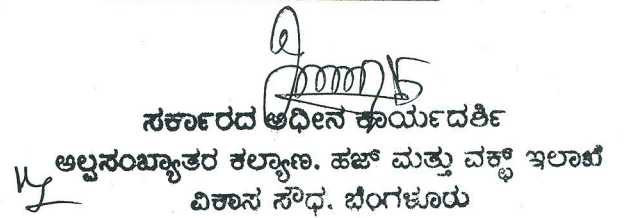 ಸರ್ಕಾರದ ಅಧೀನ ಕಾರ್ಯದರ್ಶಿ
ಅಲ್ಪಸಂಖ್ಯಾತರ ಕಲ್ಯಾಣ. ಹಜ್ ಮತ್ತು ವಕ್ಫ್ ಇಲಾಖೆ
ವಿಕಾಸ ಸೌಧ. ಬೆಂಗಳೂರು